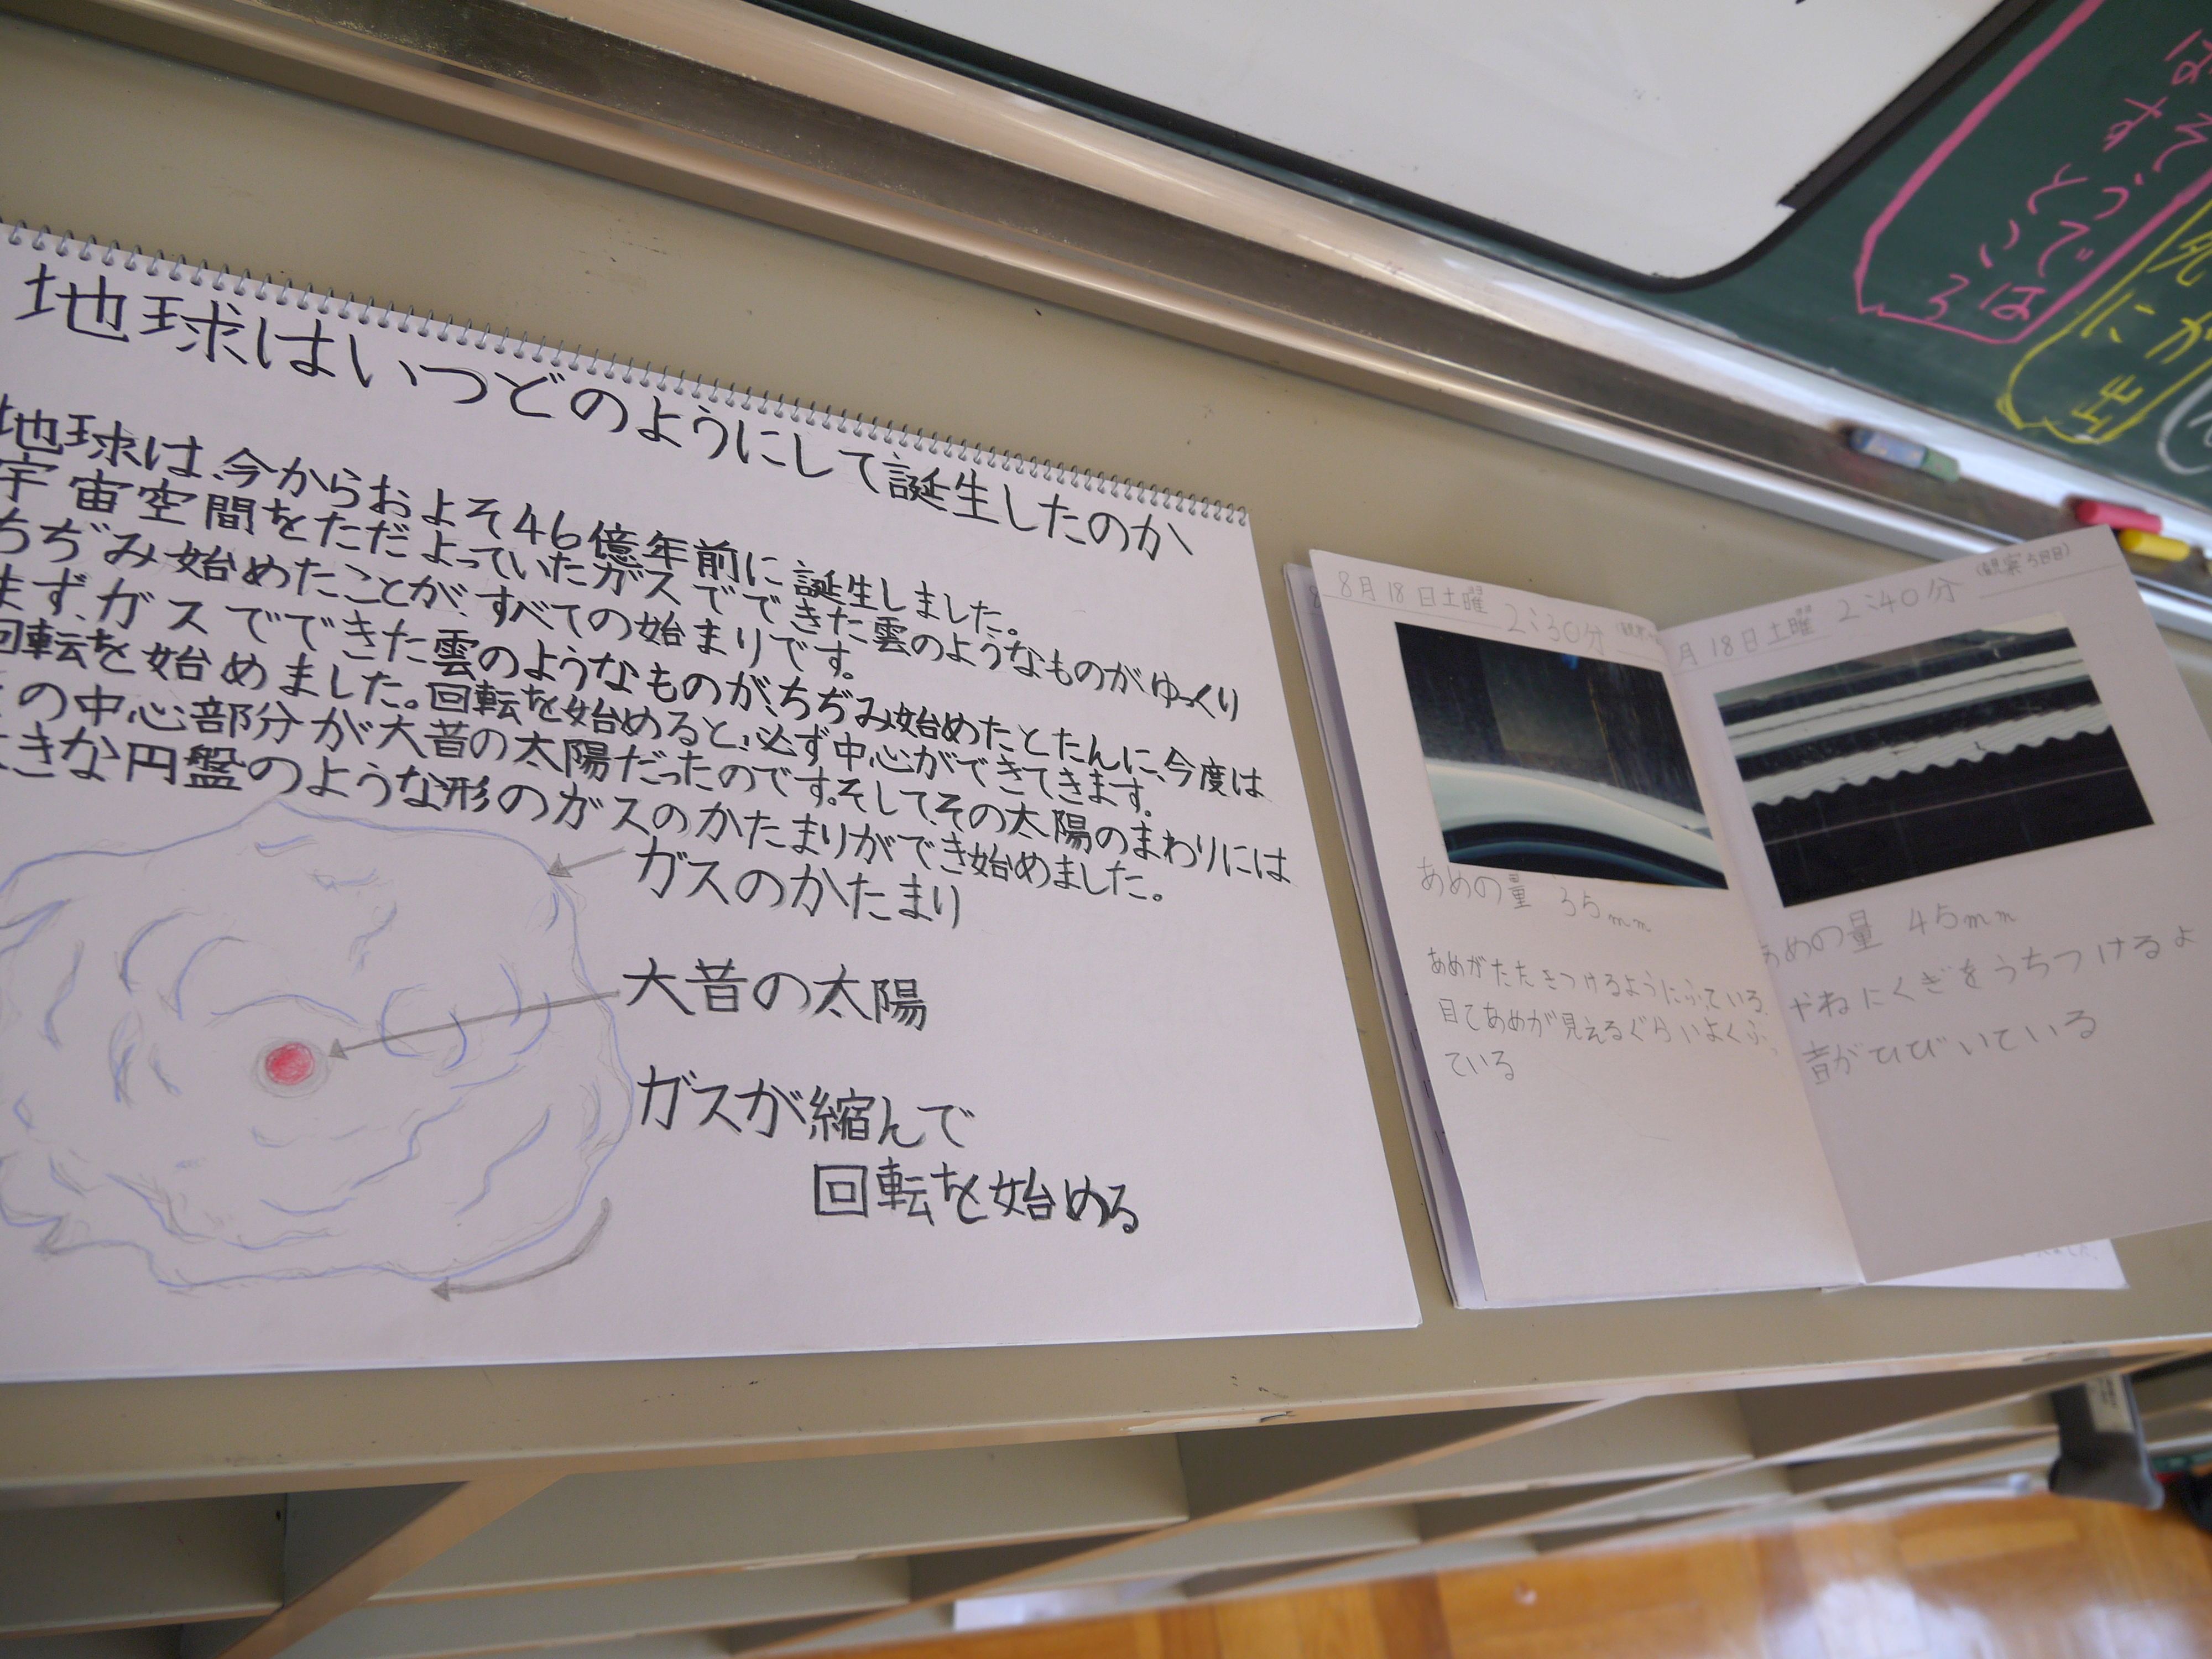 地球はいつどのようにして誕生したのか
地球は、今からおよそ46億年前に誕生しました。
宇宙空間をただよっていたガスでできた雲のようなものがゆっくり
ちぢみ始めたことが、すべての始まりです。
まず、ガスでできた雲のようなものが、ちぢみ始めたとたんに、今度は
回転を始めました。回転を始めると、必ず中心ができてきます。
の中心部分が大昔の太陽だったのです。そして、その太陽のまわりには
きな円盤のような形のガスのかたまりができ始めました。
ガスのかたまり
大昔の太陽
ガスが縮んで
回転を始める
8月18日土曜 2:30分
あめの量 35mm
あめがたたきつけるようにふっている
目であめが見えるぐらいよくふっ
ている
月18日土曜 2:40分 (観察5日目)
あめの量 45mm
やねにくぎをうちつけるよ
音がひびいている